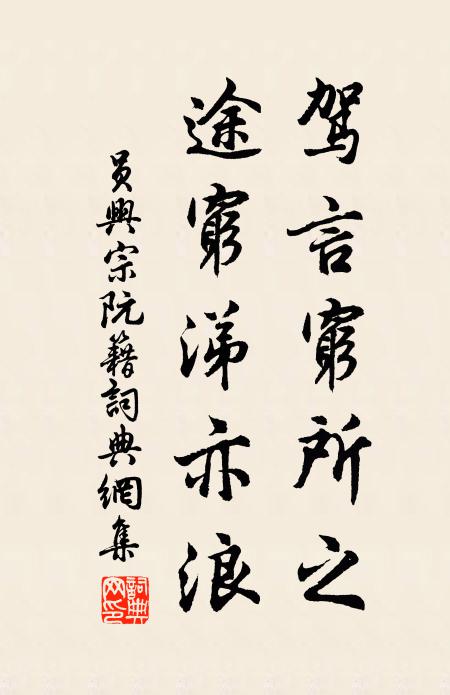 駕言窮所之
途窮涕亦浪
員興宗阮籍詞典網集
詞典网印